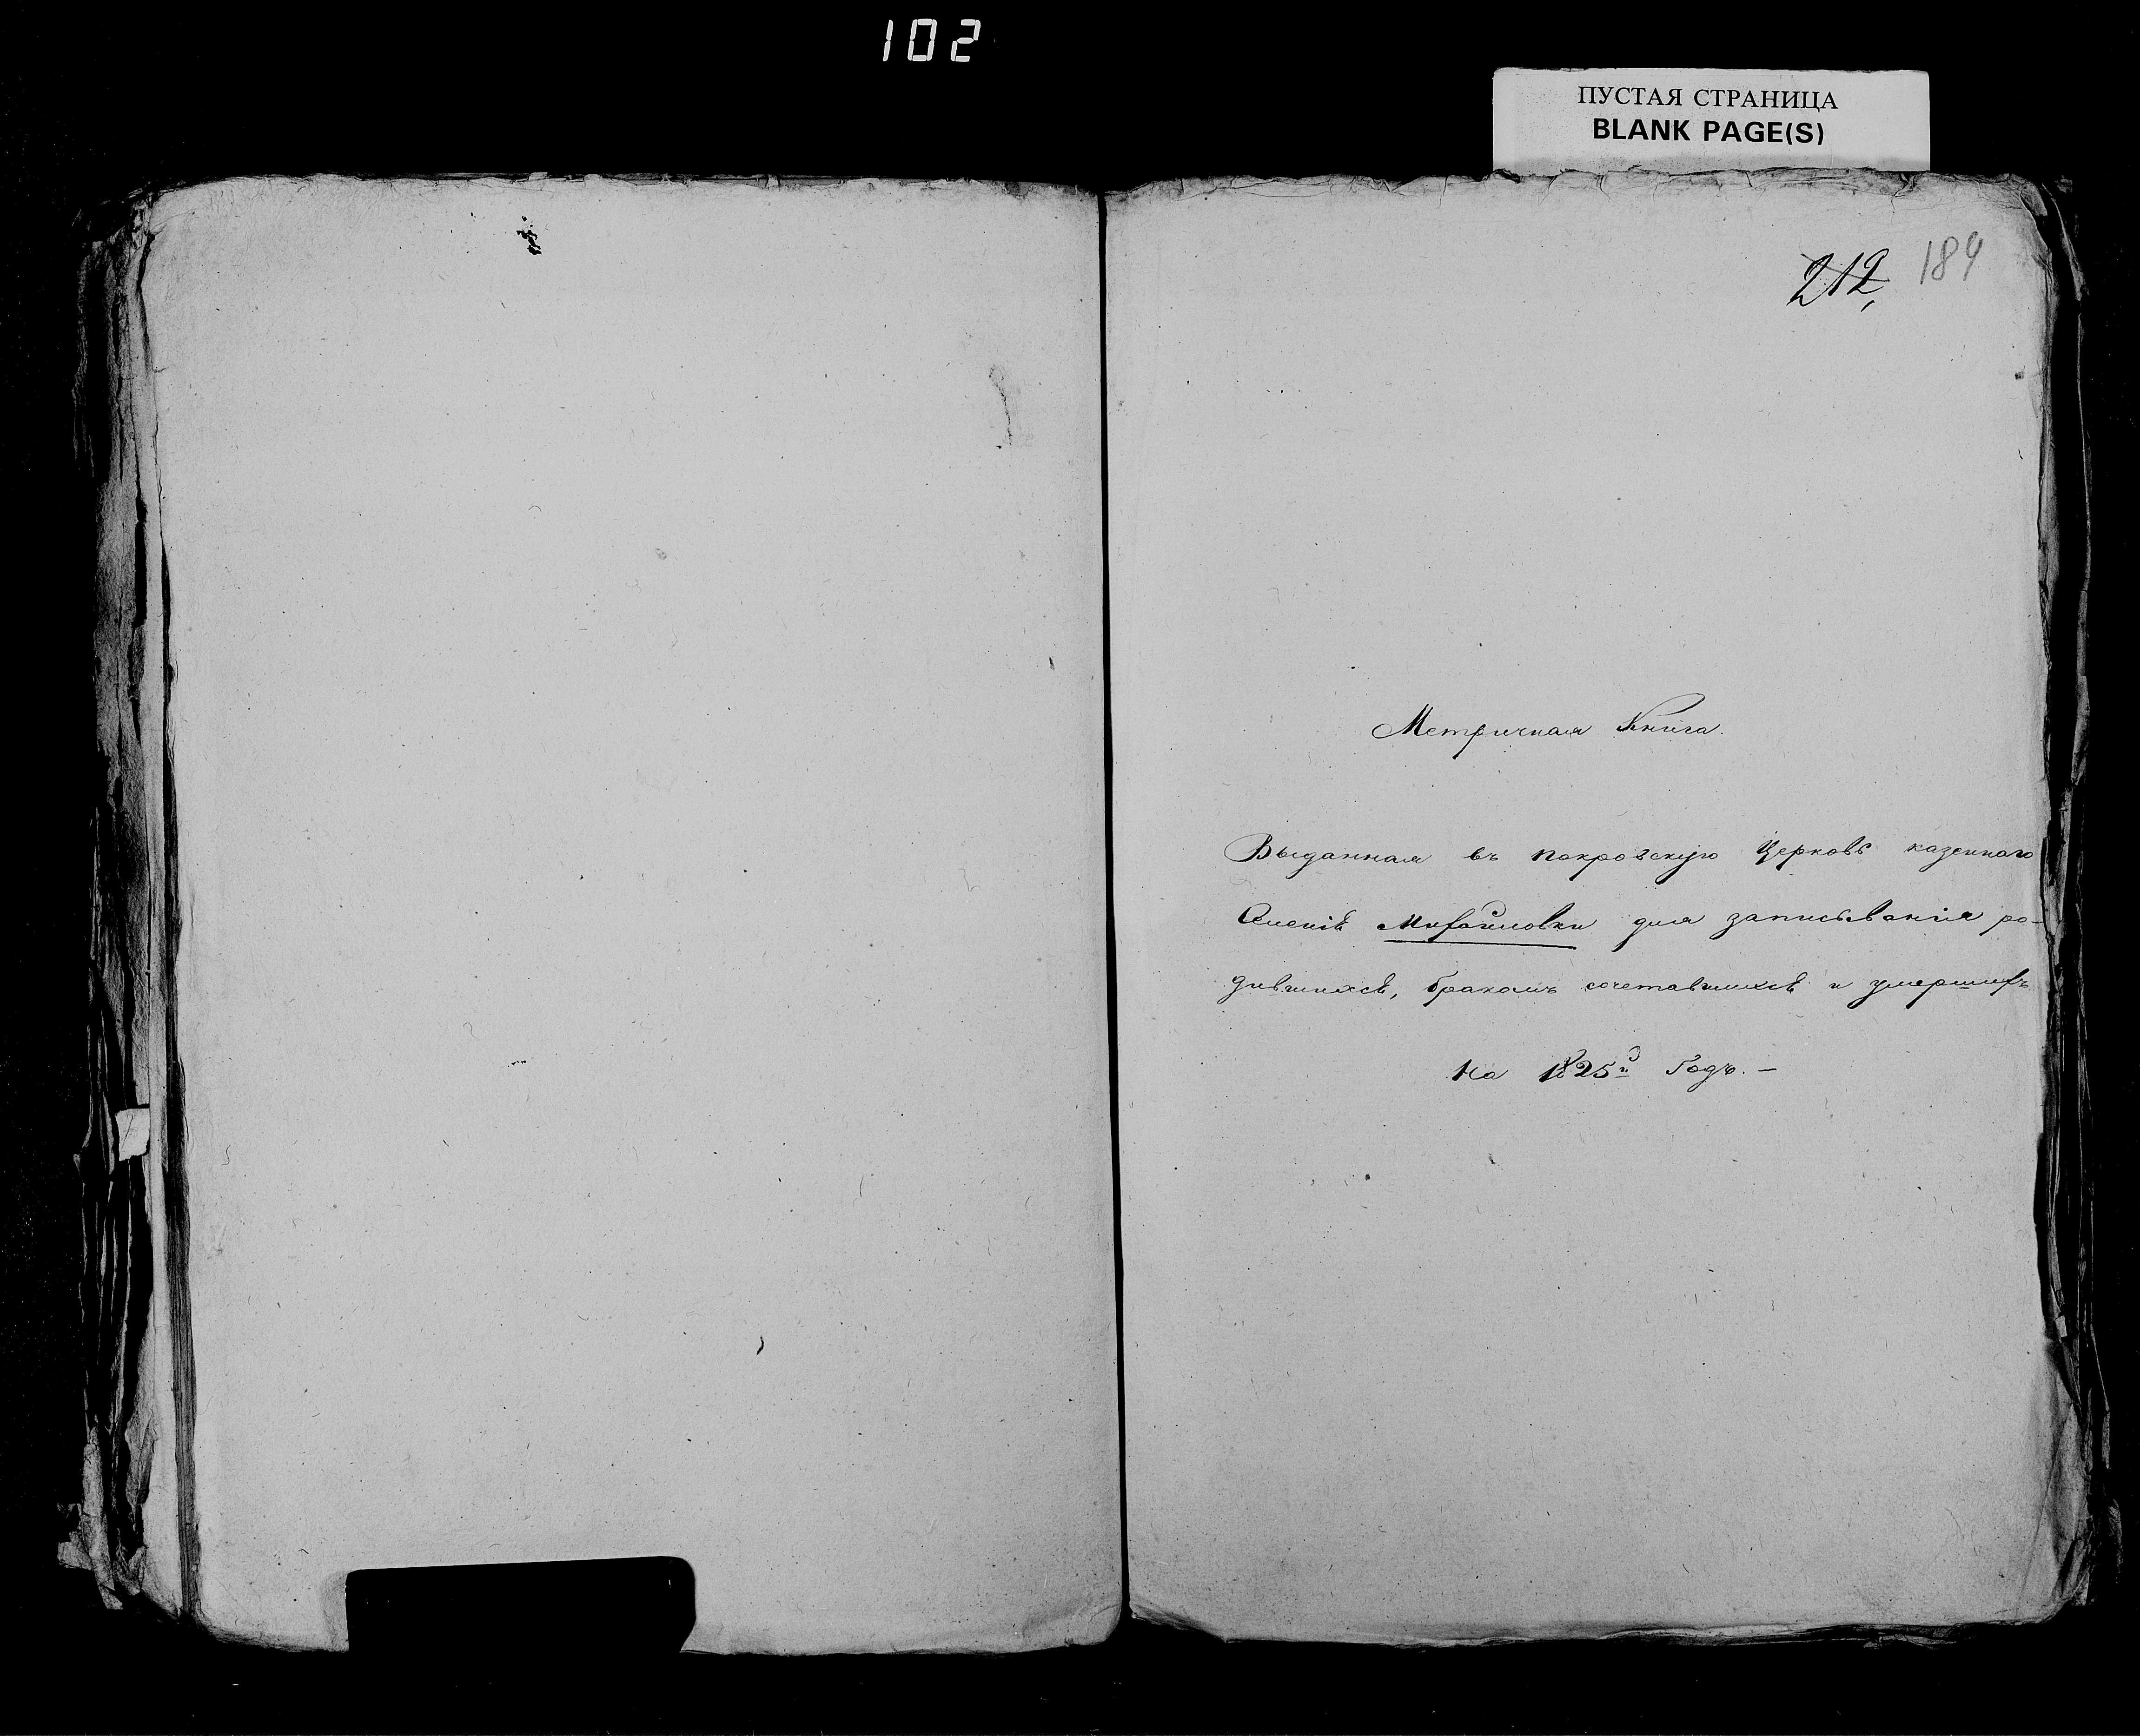 102
ПУСТАЯ СТРАНИЦА
BLANK PAGE(S)
212, 189
Метричная Книга.
Выданная въ покровскую Церковь казеннаго
Селенія Михайловки для записыванія ро-
дившихся, бракомъ сочетавшихся и умершихъ
на 1825й Годъ. –